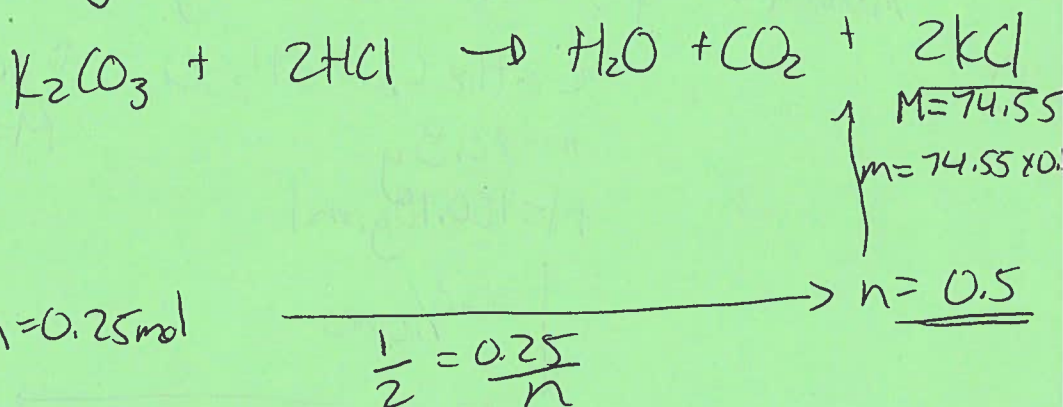 K₂CO₃ + 2HCl → H₂O + CO₂ + 2KCl
M=74.55
m=74.55x0.
=0.25mol → n=0.5
1/2 = 0.25/n